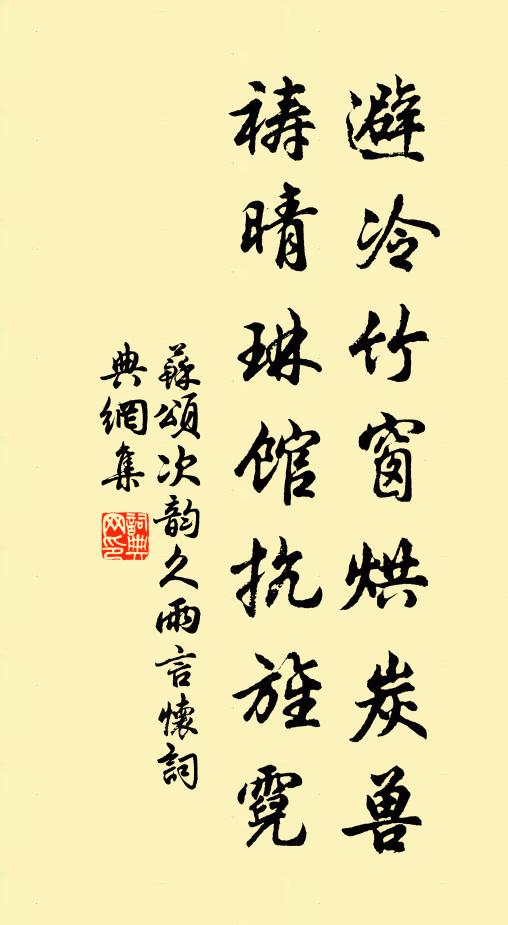 避冷竹窗烘炭兽
祷晴琳馆抗旌霓
蘇頌次韵久雨言懷詞
典網集
詞典
网印